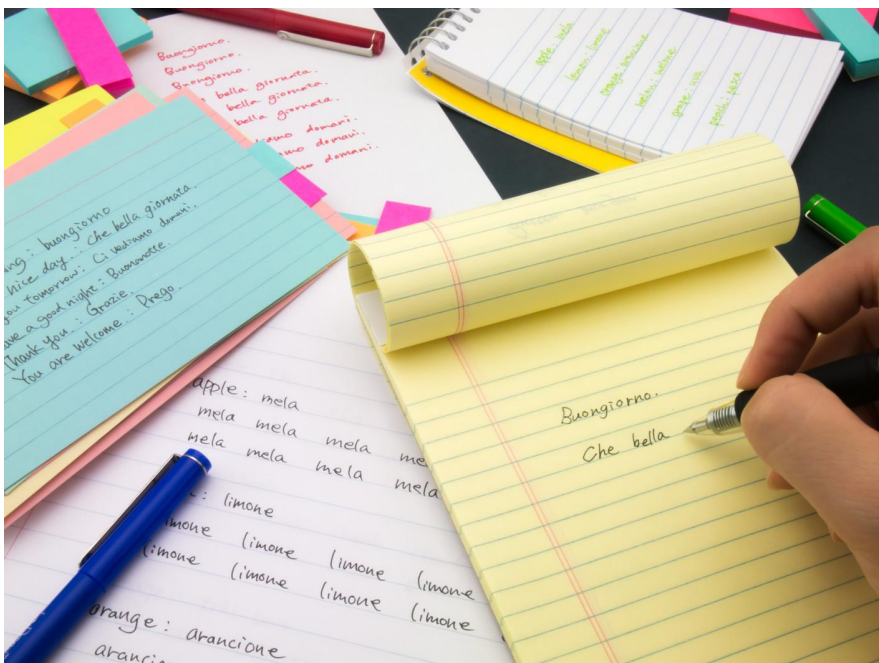 Buongiorno.
Buongiorno.
Buongiorno.
bella giornata.
bella giornata.
bella giornata.
domani.
domani.
domani.
apple:
lemon: limone
orange: arancione
grape: uva
: buongiorno
nice day : Che bella giornata.
you tomorrow: Ci vediamo domani.
have a good night : Buonanotte.
Thank you : Grazie.
You are welcome : Prego.
apple: mela
mela mela mela
mela mela mela mela
: limone
limone limone limone limone
limone limone limone limone
orange : arancione
Buongiorno.
Che bella